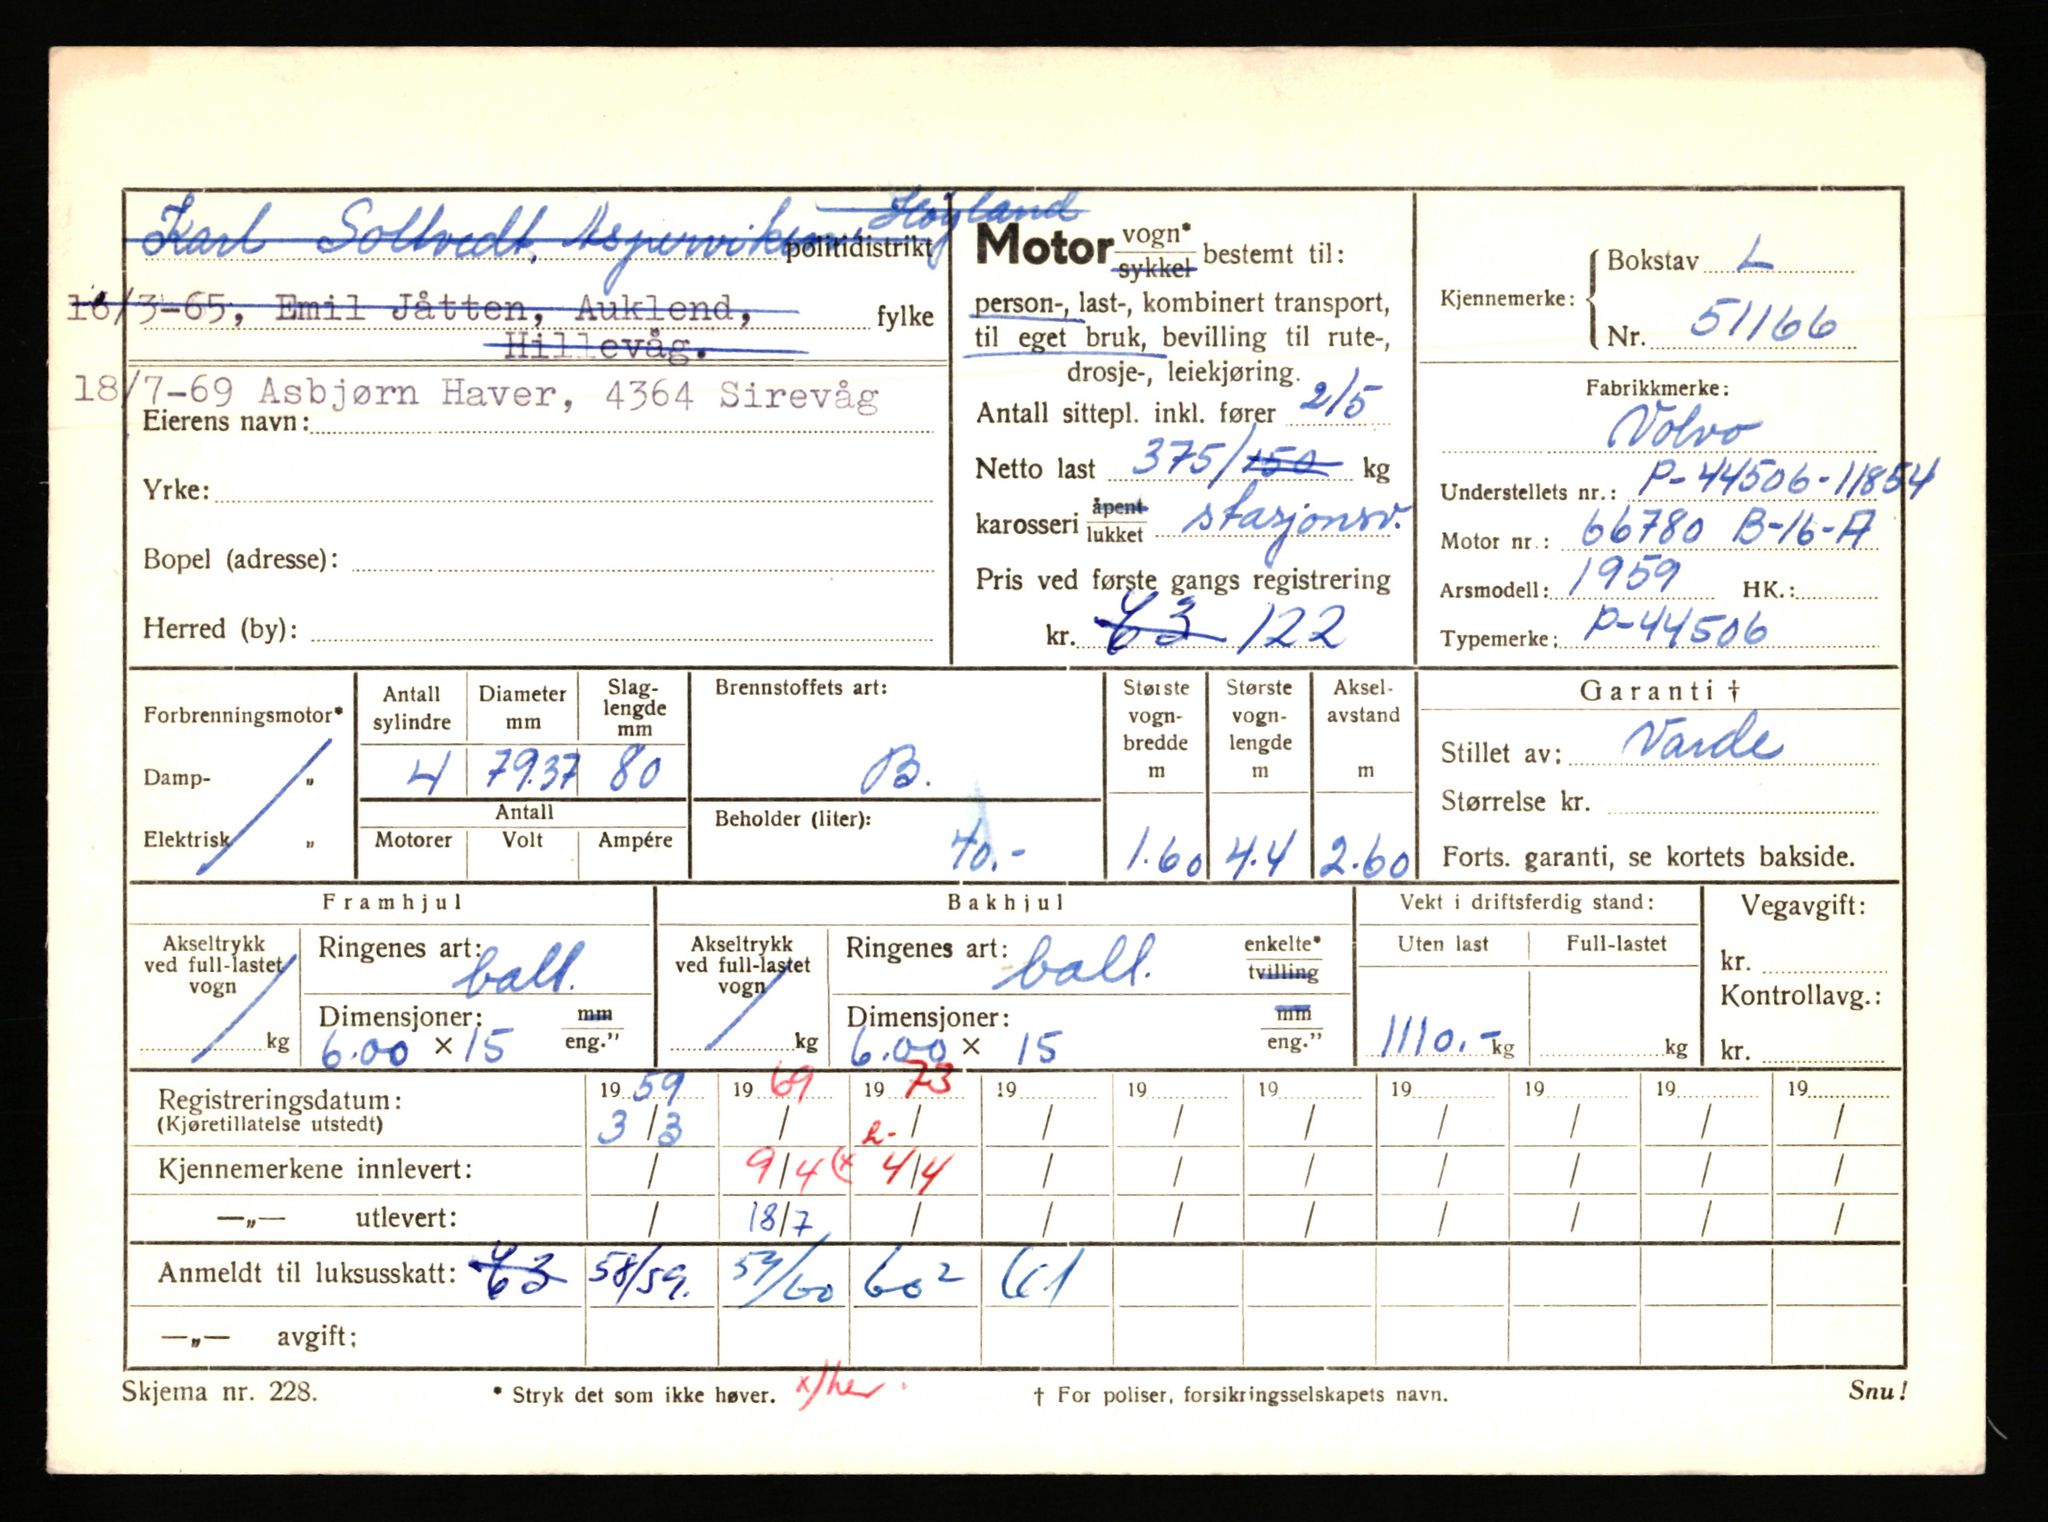 Karl Soltvedt, Asperviken Høyland
politidistrikt
16/3-65, Emil Jåtten, Auklend,
fylke
Hillevåg.
18/7-69 Asbjørn Haver, 4364 Sirevåg
Eierens navn:
Yrke:
Bopel (adresse):
Herred (by):
Motor vogn* sykkel bestemt til:
person-, last-, kombinert transport,
til eget bruk, bevilling til rute-,
drosje-, leiekjøring.
Antall sittepl. inkl. fører 2/5
Netto last 375/150 kg
karosseri åpent lukket stasjonsv.
Pris ved første gangs registrering
kr. 122
Kjennemerke: Bokstav L
Nr. 51166
Fabrikkmerke:
Volvo
Understellets nr.: P-44506-11854
Motor nr.: 66780 B-16-A
Arsmodell: 1959 HK.:
Typemerke: P-44506
Forbrenningsmotor*
Damp- „
Elektrisk „
Antall sylindre Diameter mm Slag-lengde mm
4 79.37 80
Antall
Motorer Volt Ampére
Brennstoffets art:
B.
Beholder (liter):
40.-
Største vogn-bredde m Største vogn-lengde m Aksel-avstand m
1.60 4.4 2.60
Garanti †
Stillet av: Varde
Størrelse kr.
Forts. garanti, se kortets bakside.
Framhjul
Akseltrykk ved full-lastet vogn
kg
Ringenes art: ball.
Dimensjoner: mm eng."
6.00 × 15
Bakhjul
Akseltrykk ved full-lastet vogn
kg
Ringenes art: ball. enkelte* tvilling
Dimensjoner: mm eng."
6.00 × 15
Vekt i driftsferdig stand:
Uten last Full-lastet
1110.- kg kg
Vegavgift:
kr.
Kontrollavg.:
kr.
Registreringsdatum: 1959 1969 1973 19 19 19 19 19 19 19
(Kjøretillatelse utstedt) 3/3 / / / / / / / / /
Kjennemerkene innlevert: / 9/4 (x 4/4 / / / / / / /
—„— utlevert: / 18/7 / / / / / / / /
Anmeldt til luksusskatt: 58/59. 59/60 60² 61
—„— avgift;
Skjema nr. 228.
* Stryk det som ikke høver. x/her.
† For poliser, forsikringsselskapets navn.
Snu!